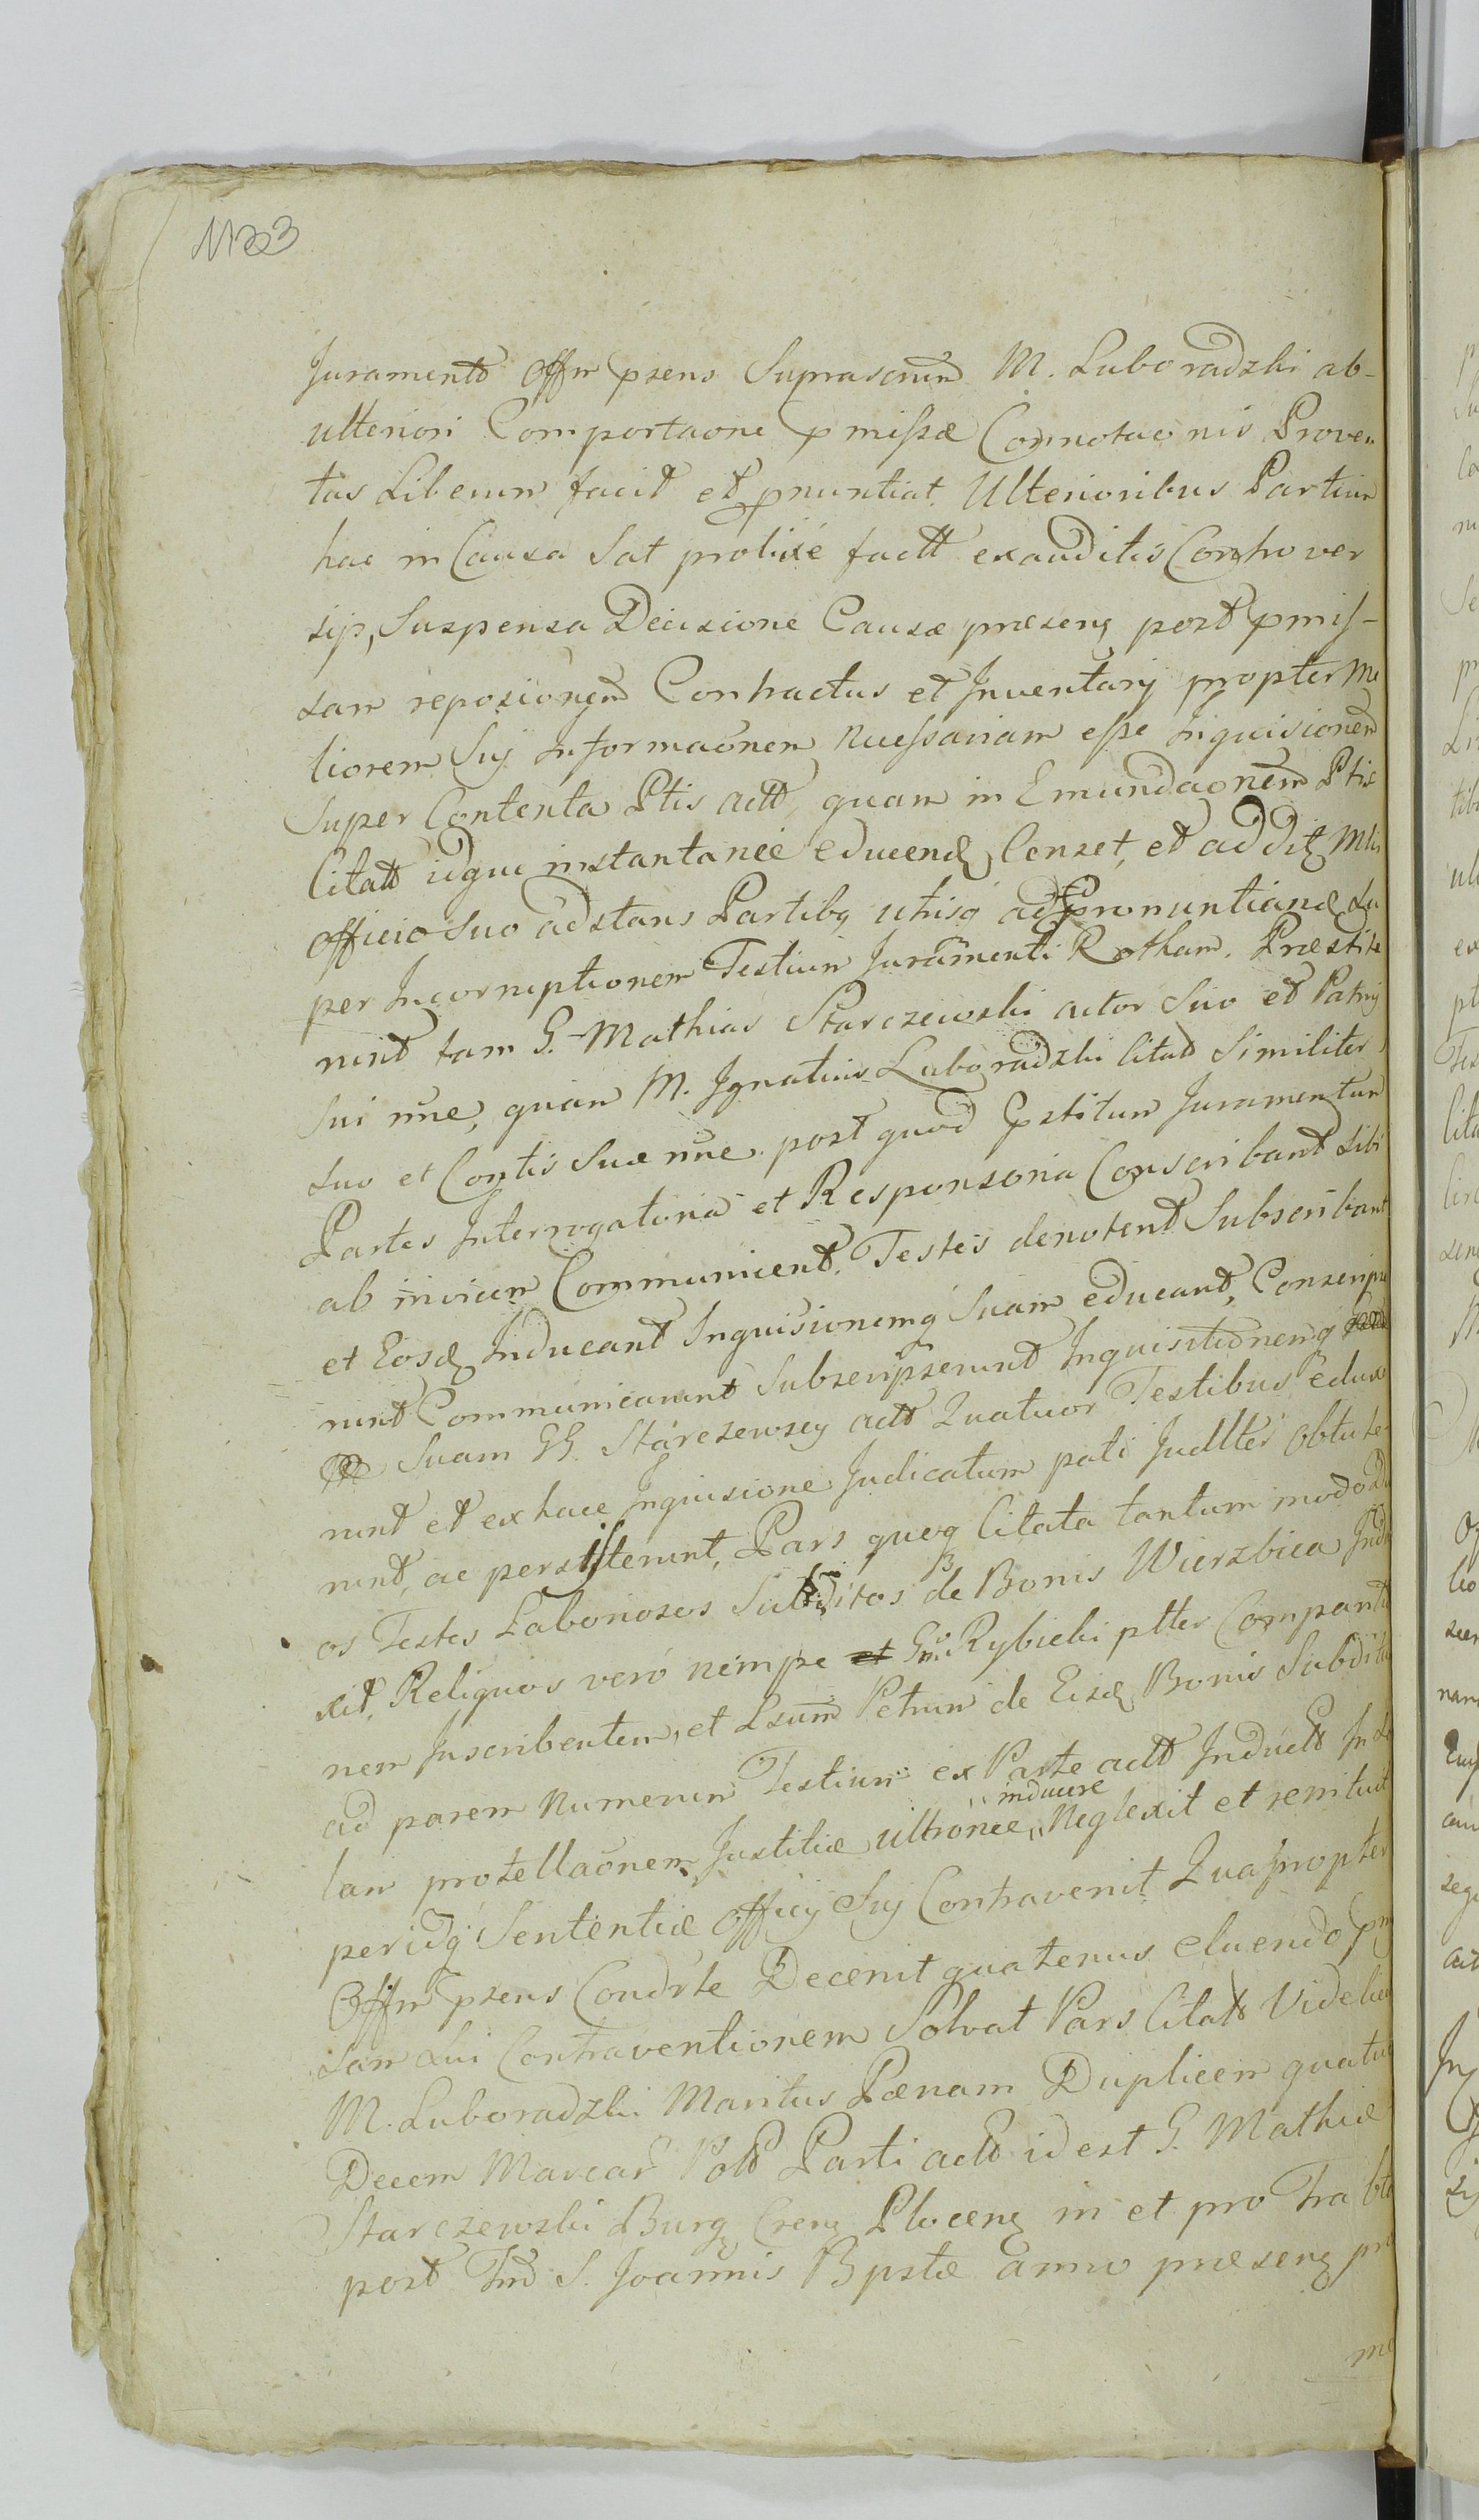 1123
Juramento Offm psens Suprascrum M. Luboradzki ab-
ulteriori Comportaone pmissæ Connotaonis Proven
tus Liberum facit et pnuntiat. Ulterioribus Partium
hac in Causa Sat prolixé factt exauditis Controver
sijs, Suspensa Decisione Causæ præsens post pmis-
sam reposionem Contractus et Inventarij propter me
liorem Sui Informaonem necessariam esse Inquisionem
Super Contenta Ptis actt, quam in Emundaonem Ptis
Citatt idque instantaneé educend Censet, et addit Mli
officio Suo adstans Partibq utrisq ad pronuntiand Su
per Incorruptionem Testium Juramenti Rotham. Præstite
runt tam G. Mathias Starczewski actor Suo et Patrij
Sui nne, quam M. Ignatius Luboradzki Citatt Similiter
Suo et Contis Suæ nne. post quod pstitum Juramentum
Partes Interrogatoria et Responsoria Conscribant Sibi
ab invicem Communicent. Testes denotent Subscribant
et Eosd Inducant Inquisionemq Suam educant, Conscripse
runt Communicarunt Subscripserunt Inquisitionemq
Suam GG. Starczewscy actt Quatuor Testibus eduxe
runt et ex hacce Inquisione Judicatum pati Judlter obtule
runt, ac perstiterunt, Pars queq Citata tantum modo
os Testes Laboriosos Subditos de Bonis Wierzbica Indu
xit, Reliquos veró nempe Gm Rybicki plter Comparitio
nem Inscribentem, et Lsum Petrum de Eisd Bonis Subditu
ad parem numerum Testium ex Parte actt Inductt In So
lam protellaonem Justitiæ ultronee inducere Neglexit et renituit
peridq Sententiæ Officij Sui Contravenit Quapropter
Offm psens Condrte Decernit quatenus eluendo pmis
sam Sui Contraventionem Solvat Pars Citatt Videlicet
M. Luboradzki Maritus Pænam Duplicem quatuor
Decem Marcar Poll Parti actt id est G. Mathiæ
Starczewski Burg Crens Plocens in et pro Tra bta
post Fm S. Joannis Bpstæ anno præsens pro
me